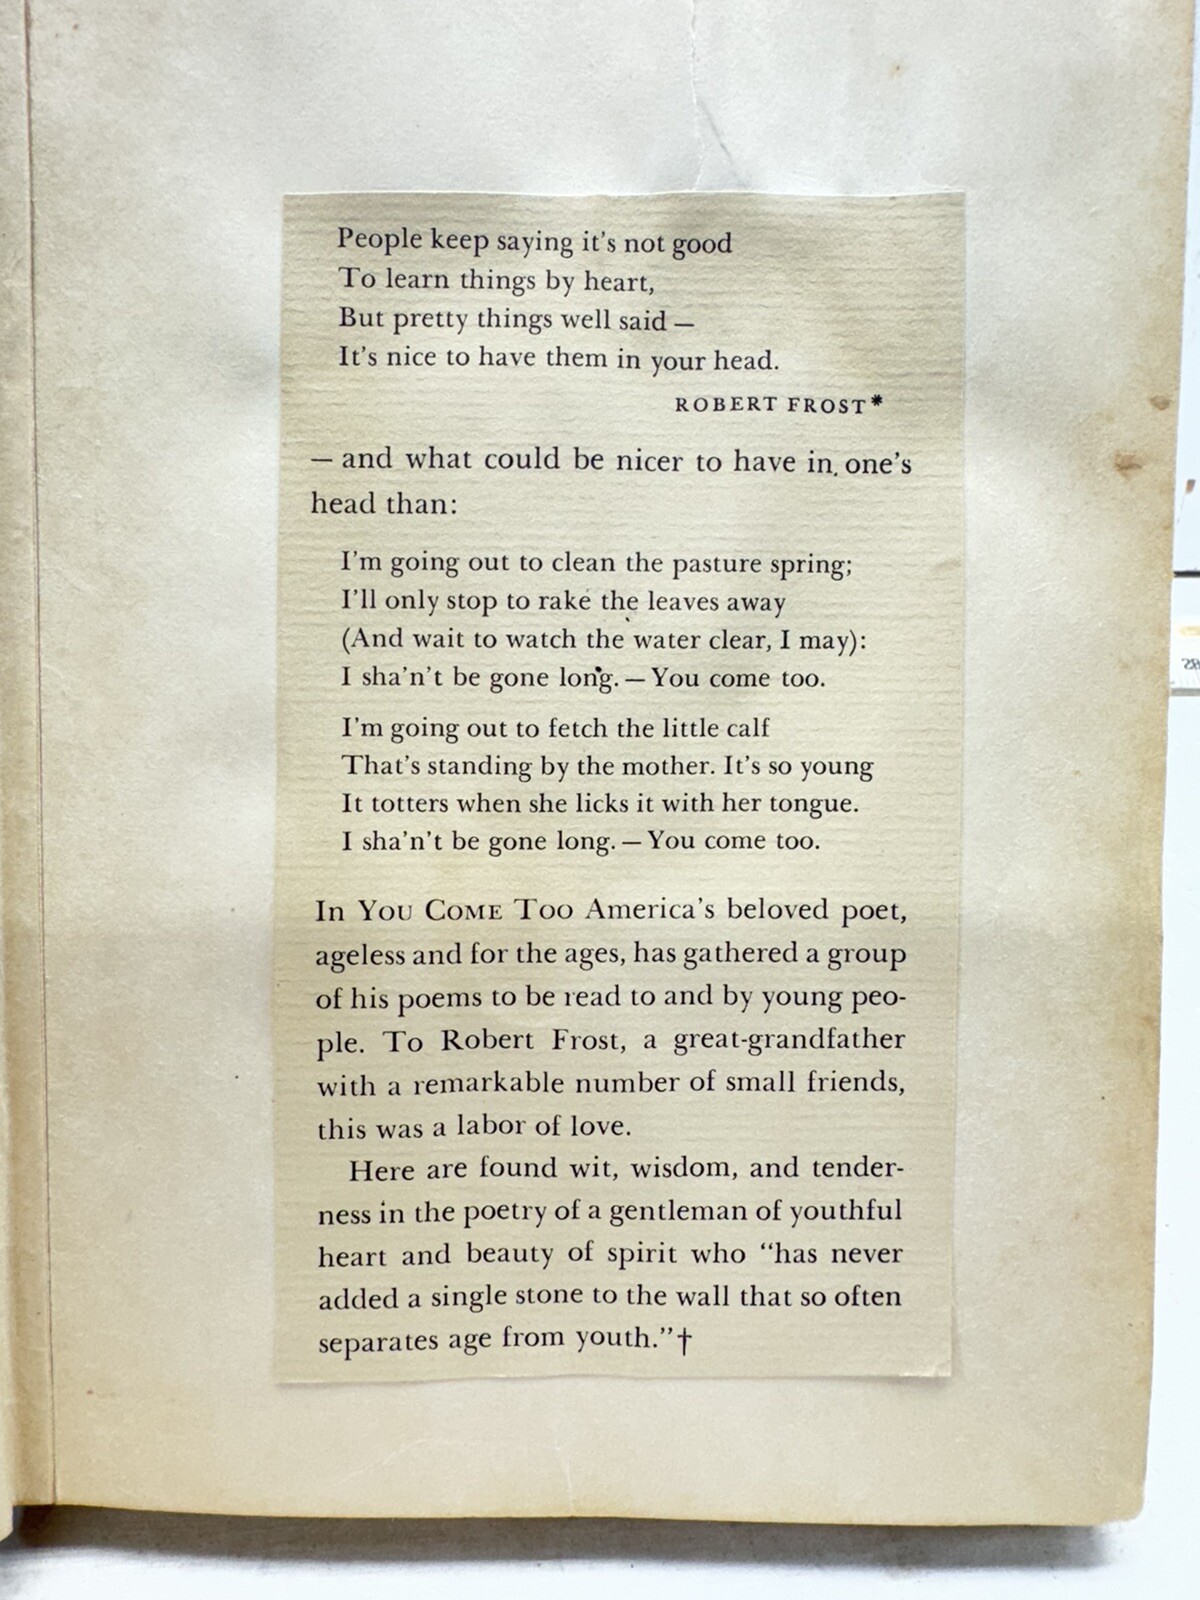 People keep saying it's not good
To learn things by heart,
But pretty things well said —
It's nice to have them in your head.
ROBERT FROST*
— and what could be nicer to have in one's
head than:
I'm going out to clean the pasture spring;
I'll only stop to rake the leaves away
(And wait to watch the water clear, I may):
I sha'n't be gone long. — You come too.
I'm going out to fetch the little calf
That's standing by the mother. It's so young
It totters when she licks it with her tongue.
I sha'n't be gone long. — You come too.
In YOU COME TOO America's beloved poet,
ageless and for the ages, has gathered a group
of his poems to be read to and by young peo-
ple. To Robert Frost, a great-grandfather
with a remarkable number of small friends,
this was a labor of love.
Here are found wit, wisdom, and tender-
ness in the poetry of a gentleman of youthful
heart and beauty of spirit who “has never
added a single stone to the wall that so often
separates age from youth.”†